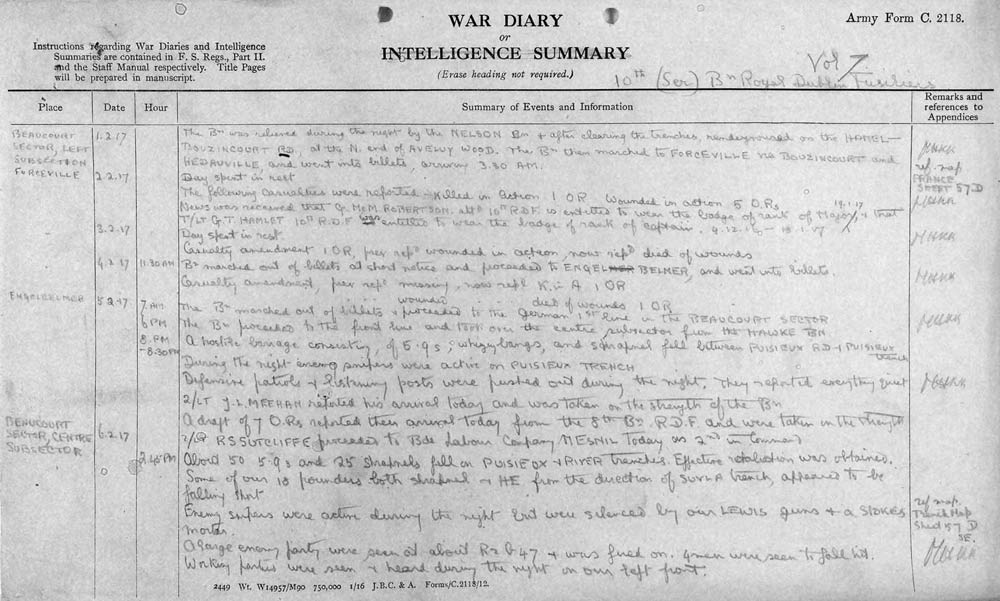 WAR DIARY
or
INTELLIGENCE SUMMARY
(Erase heading not required.)
Army Form C. 2118.
Instructions regarding War Diaries and Intelligence
Summaries are contained in F. S. Regs., Part II.
and the Staff Manual respectively. Title Pages
will be prepared in manuscript.
Vol 7
10th (Ser) Bn Royal Dublin Fusiliers
Place Date Hour Summary of Events and Information Remarks and references to Appendices
BEAUCOURT SECTOR, LEFT SUBSECTION 1.2.17 The Bn was relieved during the night by the NELSON Bn & after clearing the trenches, rendezvoused on the HAMEL–
BOUZINCOURT RD, at the N. end of AVELUY WOOD. The Bn then marched to FORCEVILLE via BOUZINCOURT and
HEDAUVILLE, and went into billets, arriving 3.30 AM.
FORCEVILLE 2.2.17 Day spent in rest
ref. map FRANCE SHEET 57.D
The following casualties were reported – Killed in Action 1 OR Wounded in action 5 O.Rs
News was received that McM ROBERTSON 10th R.D.F. is entitled to wear the badge of rank of Major 19.1.17 & that
T/Lt G.T. HAMLET 10th R.D.F. was entitled to wear the badge of rank of Captain 4.12.16 – 18.1.17
3.2.17 Day spent in rest
Casualty amendment 1 OR, prev repd wounded in action, now repd died of wounds
4.2.17 11.30 AM Bn marched out of billets at short notice and proceeded to ENGELBELMER, and went into billets.
Casualty amendment, prev repd missing, now repd K. in A. 1 OR
wounded died of wounds 1 OR
ENGELBELMER 5.2.17 7 AM The Bn marched out of billets & proceeded to the German 1st line in the BEAUCOURT SECTOR
6 PM The Bn proceeded to the front line and took over the centre subsector from the HAWKE BN
8 PM – 8.30 PM A hostile barrage consisting of 5.9s, whizzbangs, and shrapnel fell between PUISIEUX RD & PUISIEUX trench
During the night enemy snipers were active on PUISIEUX TRENCH
Defensive patrols & listening posts were pushed out during the night. They reported everything quiet
2/LT J.L. MEEHAN reported his arrival today and was taken on the strength of the Bn
BEAUCOURT SECTOR, CENTRE SUBSECTOR 6.2.17 A draft of 7 O.Rs reported their arrival today from the 8th Bn R.D.F. and were taken on the strength
RS SUTCLIFFE proceeded to Bde Labour Company MESNIL today as 2nd in Command
2.45 PM About 50 5.9s and 25 shrapnels fell on PUISIEUX & RIVER trenches. Effective retaliation was obtained.
Some of our 18 pounders both shrapnel & HE from the direction of SUVLA trench, appeared to be
falling short
Enemy snipers were active during the night but were silenced by our LEWIS guns & a STOKES
mortar.
ref map Trench Map Sheet 57 D SE.
A large enemy party were seen at about R2 b 47 & was fired on. 4 men were seen to fall hit.
Working parties were seen & heard during the night on our left front.
2449 Wt. W14957/M90 750,000 1/16 J.B.C. & A. Forms/C.2118/12.